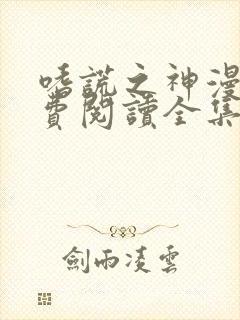 嗜謊之神漫
費閱讀全集
劍雨凌雲